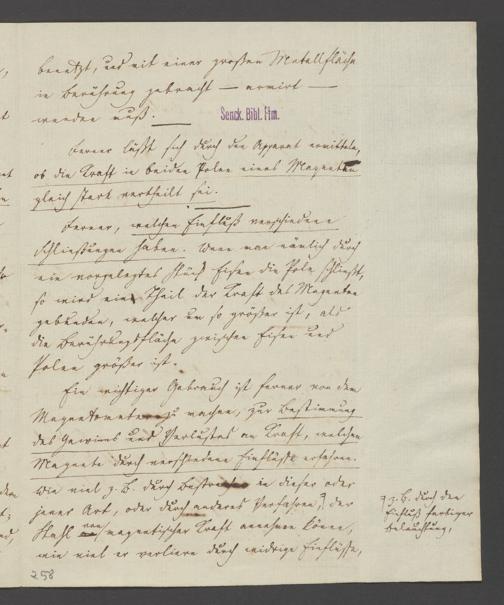 benutzt, und mit einer großen Metallfläche
in Berührung gebracht — armirt —
werden muß.
Senck. Bibl. Ffm.
Ferner läßt sich durch den Apparat ermitteln,
ob die Kraft in beiden Polen eines Magneten
gleich stark vertheilt sei.
Ferner, welchen Einfluß verschiedene
Schließungen haben. Wenn man nämlich durch
ein vorgelegtes Stück Eisen die Pole schließt,
so wird ein Theil der Kraft des Magneten
gebunden, welcher um so größer ist, als
die Berührungsfläche zwischen Eisen und
Polen größer ist.
Ein wichtiger Gebrauch ist ferner von dem
Magnetometer zu machen, zur Bestimmung
des Gewinns und Verlustes an Kraft, welchen
Magnete durch verschiedene Einflüsse erfahren.
Wie viel z. B. durch in dieser oder
jener Art, oder durch anderes Verfahren, der
Stahl von magnetischer Kraft annehmen könne,
wie viel er verliere durch widrige Einflüsse,
z. B. durch den
Einfluß farbiger
Beleuchtung,
258